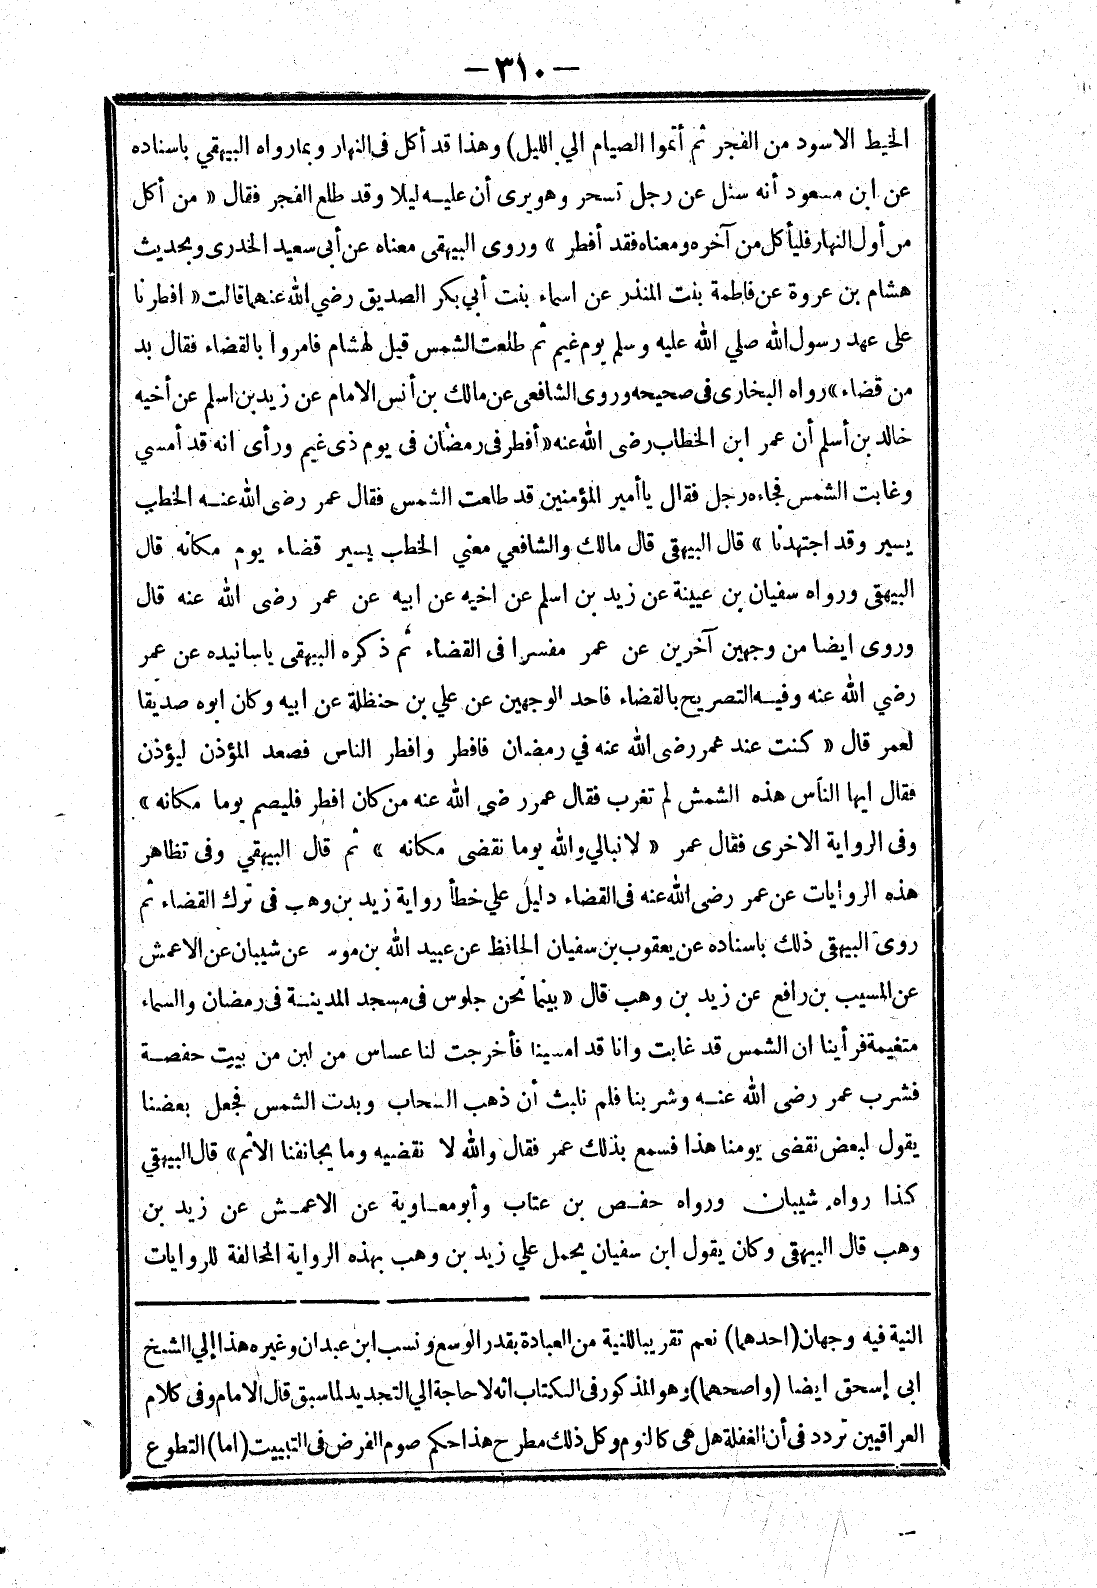 — ٣١٠ —
الخيط الاسود من الفجر ثم أتموا الصيام الي الليل) وهذا قد أكل فى النهار وبما رواه البيهقي باسناده
عن ابن مسعود أنه سئل عن رجل تسحر وهو يرى أن عليه ليلا وقد طلع الفجر فقال « من أكل
من أول النهار فليأكل من آخره ومعناه فقد أفطر » وروى البيهقى معناه عن أبى سعيد الخدرى وبحديث
هشام بن عروة عن فاطمة بنت المنذر عن اسماء بنت أبي بكر الصديق رضي الله عنهما قالت « افطرنا
على عهد رسول الله صلي الله عليه وسلم يوم غيم ثم طلعت الشمس قيل لهشام فامروا بالقضاء فقال بد
من قضاء » رواه البخارى فى صحيحه وروى الشافعى عن مالك بن أنس الامام عن زيد بن اسلم عن أخيه
خالد بن أسلم أن عمر ابن الخطاب رضى الله عنه « أفطر فى رمضان فى يوم ذى غيم ورأى انه قد أمسي
وغابت الشمس فجاءه رجل فقال يا أمير المؤمنين قد طلعت الشمس فقال عمر رضى الله عنه الخطب
يسير وقد اجتهدنا » قال البيهقى قال مالك والشافعي معني الخطب يسير قضاء يوم مكانه قال
البيهقى ورواه سفيان بن عيينة عن زيد بن اسلم عن اخيه عن ابيه عن عمر رضى الله عنه قال
وروى ايضا من وجهين آخرين عن عمر مفسرا فى القضاء ثم ذكره البيهقى باسانيده عن عمر
رضي الله عنه وفيه التصريح بالقضاء فاحد الوجهين عن علي بن حنظلة عن ابيه وكان ابوه صديقا
لعمر قال « كنت عند عمر رضى الله عنه في رمضان فافطر وافطر الناس فصعد المؤذن ليؤذن
فقال ايها الناس هذه الشمش لم تغرب فقال عمر رضى الله عنه من كان افطر فليصم يوما مكانه »
وفى الرواية الاخرى فقال عمر « لا نبالي والله يوما نقضى مكانه » ثم قال البيهقي وفى تظاهر
هذه الروايات عن عمر رضى الله عنه فى القضاء دليل علي خطأ رواية زيد بن وهب فى ترك القضاء ثم
روى البيهقى ذلك باسناده عن يعقوب بن سفيان الحافظ عن عبيد الله بن عن شيبان عن الاعمش
عن المسيب بن رافع عن زيد بن وهب قال « بينما نحن جلوس فى مسجد المدينة فى رمضان والسماء
متغيمة فرأينا ان الشمس قد غابت وانا قد امسينا فأخرجت لنا عساس من لبن من بيت حفصة
فشرب عمر رضى الله عنه وشربنا فلم نلبث أن ذهب السحاب وبدت الشمس فجعل بعضنا
يقول لبعض نقضى يومنا هذا فسمع بذلك عمر فقال والله لا نقضيه وما يجانفنا الاثم » قال البيهقي
كذا رواه شيبان ورواه حفص بن عتاب وأبو معاوية عن الاعمش عن زيد بن
وهب قال البيهقى وكان يقول ابن سفيان يحمل علي زيد بن وهب بهذه الرواية المخالفة للروايات
النية فيه وجهان (احدهما) نعم تقريبا للنية من العبادة بقدر الوسع ونسب ابن عبدان وغيره هذا إلي الشيخ
ابى إسحق ايضا (واصحهما) وهو المذكور فى الكتاب انه لا حاجة الي التجديد لما سبق قال الامام وفى كلام
العراقيين تردد فى أن الغفلة هل هى كالنوم وكل ذلك مطرح هذا حكم صوم الفرض فى التبييت (اما) التطوع